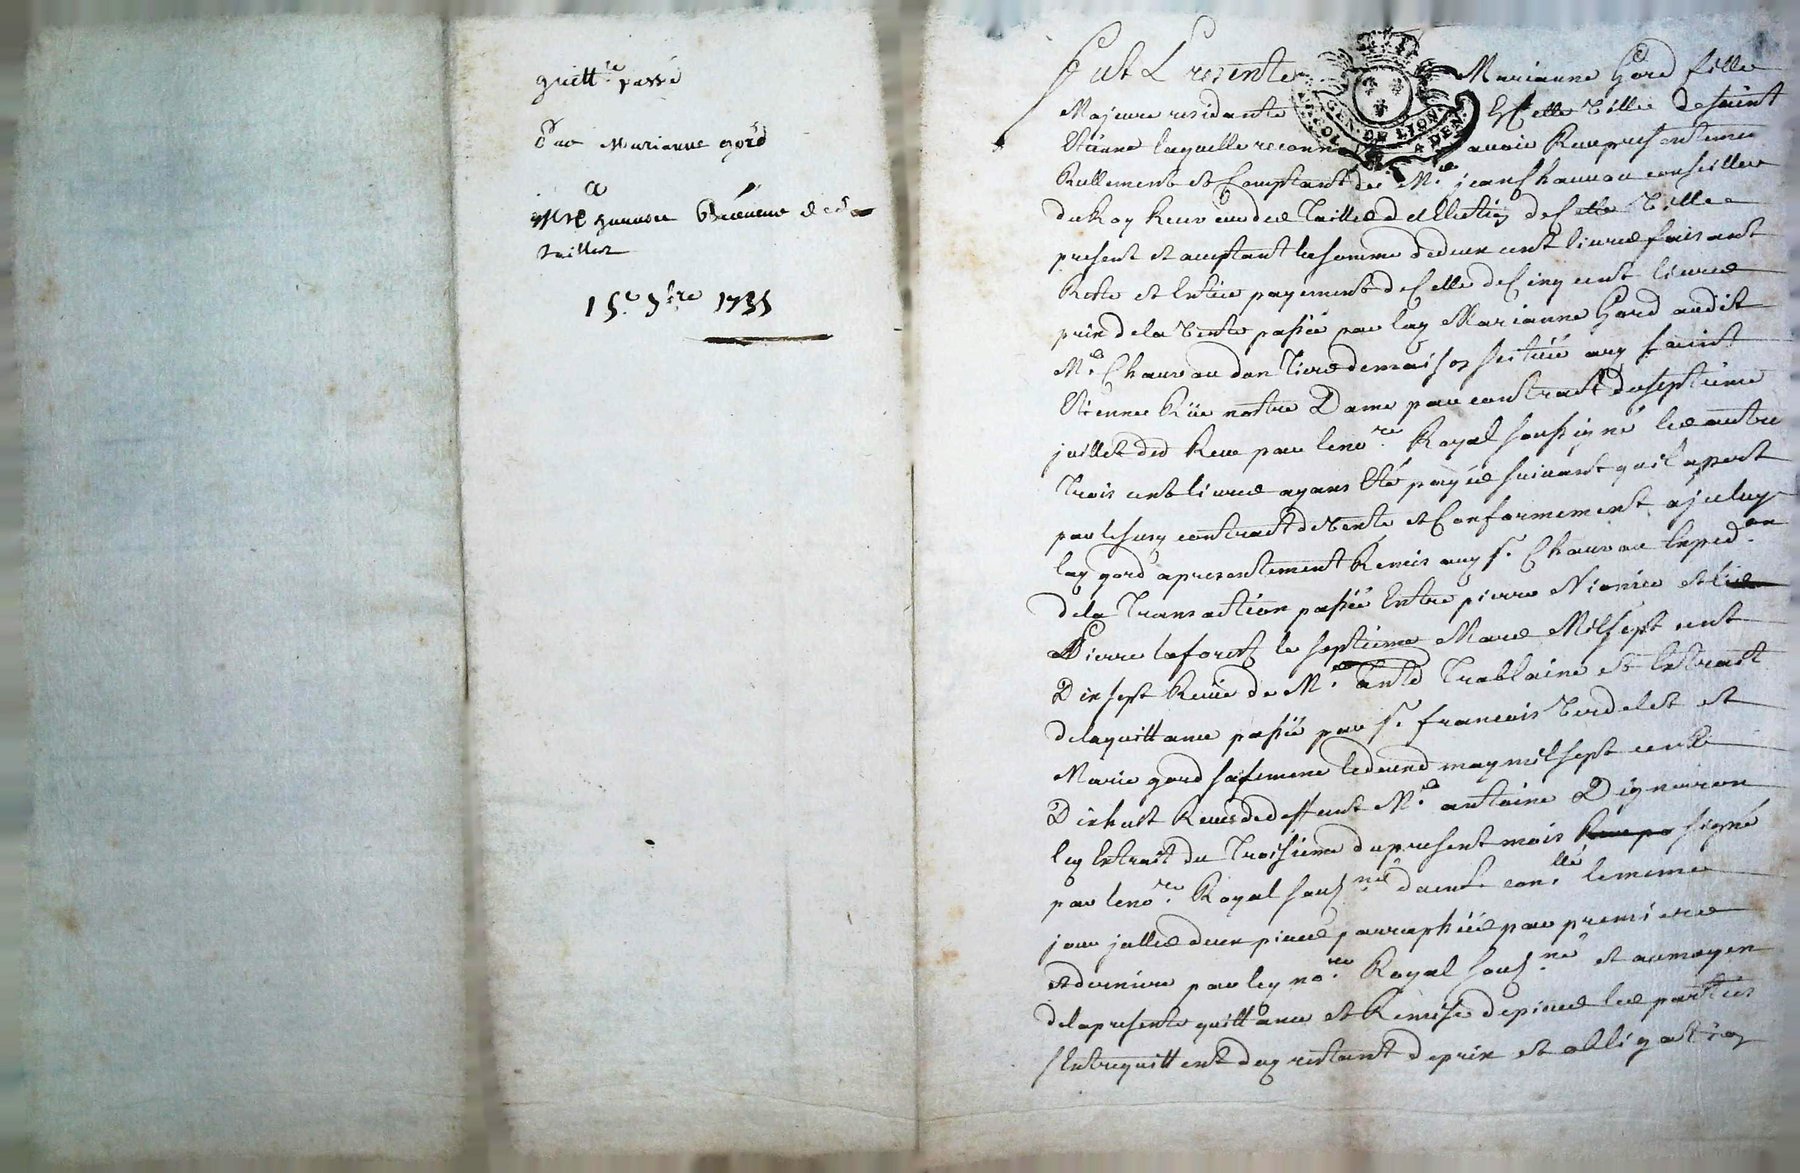 quitt.ce passé
par Marianne gord
a
Mr Chauvau Receveur des
tailles
15.e 7bre 1735
Fut Presente Marianne Gord fille
Majeure residante En cette Ville de saint
Etienne laquelle reconnoit avoir Reçu presentement
Reellement et Comptant de Me jean Chauvau conseiller
du Roy Receveur des Tailles de l'Election de Cette Ville
present et acceptant la somme de deux cent livres faisant
Reste et Entier payement de Celle de Cinq cent livres
prix de la Vente passée par lad Marianne Gord audit
Me Chauvau d'un Tiers de maison scituée aud saint
Etienne Rüe nôtre Dame par contract du septieme
juillet der Reçu par le no.re Royal soussigné les autres
Trois cent livres ayant Eté payées suivant qu'il apert
par lesusd contract de Vente et Conformement a jceluy
lad gord a presentement Remis aud s.r Chauvau Exped.on
de la Transaction passée Entre pierre et
Pierre laforest le septieme Mars Mil sept cent
Dix sept Reçüe de Me Trablaine et Extrait
de la quittance passée par s.r francois Verdelet et
Marie gord sa femme le second may mil sept cent
Dix huit Reçu de deffunt Me antoine Dignaron
led Extrait du Troisieme du present mois signé
par le no.re Royal sous.né d'acute con.llé le meme
jour jcelles deux pieces parraphées par premiere
et derniere par led no.re Royal sous.né et au moyen
de la presente quittance et Remise de pieces les parties
s'Entrequittent dud restant de prix et obligation